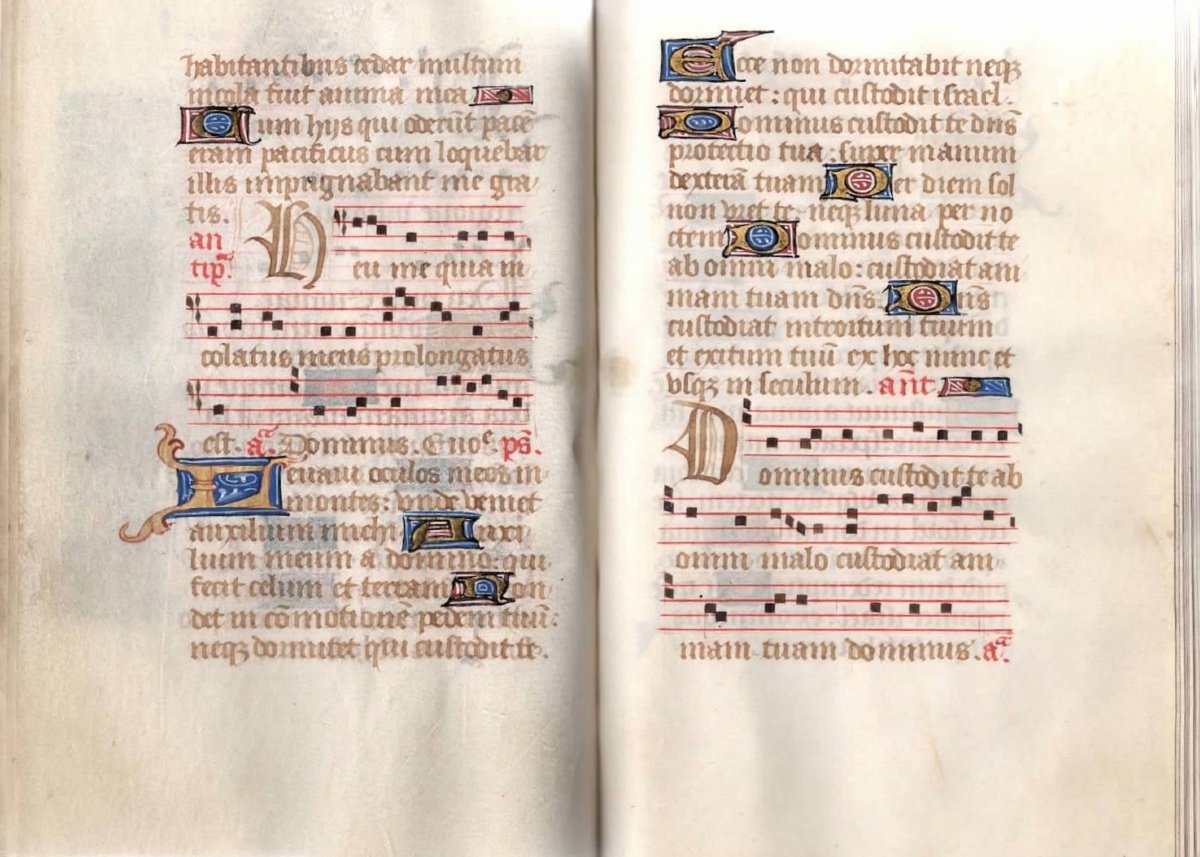 habitantibus cedar multum
incola fuit anima mea
Cum hijs qui oderūt pacē
eram pacificus cum loquebar
illis impugnabant me gra
tis.
an
tip̄.
Heu me quia in
colatus meus prolongatus
est. a͡. Dominus. Euoᵉ. ps̄.
Leuaui oculos meos in
montes: vnde veniet
auxilium michi Auxi
lium meum a domino: qui
fecit celum et terram Non
det in cōmotionē pedem tuū:
neqꝫ dormitet qui custodit te.
Ecce non dormitabit neqꝫ
dormiet: qui custodit israel.
Dominus custodit te dn̄s
protectio tua: super manum
dexterā tuam Per diem sol
non vret te: neqꝫ luna per no
ctem Dominus custodit te
ab omni malo: custodiat ani
mam tuam dn̄s. Dn̄s
custodiat introitum tuum
et exitum tuū ex hoc nunc et
vsqꝫ in seculum. an̄t.
Dominus custodit te ab
omni malo custodiat ani
mam tuam dominus. a͡.